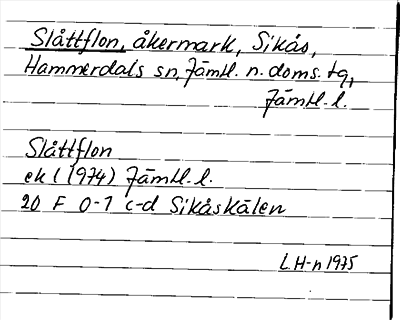 Slåttflon, åkermark, Sikås,
Hammerdals sn, Jämtl. n. doms. tg,
Jämtl. l.
Slåttflon
ek l (1974) Jämtl. l.
20 F 0-1 c-d Sikåskälen
L.H-n 1975